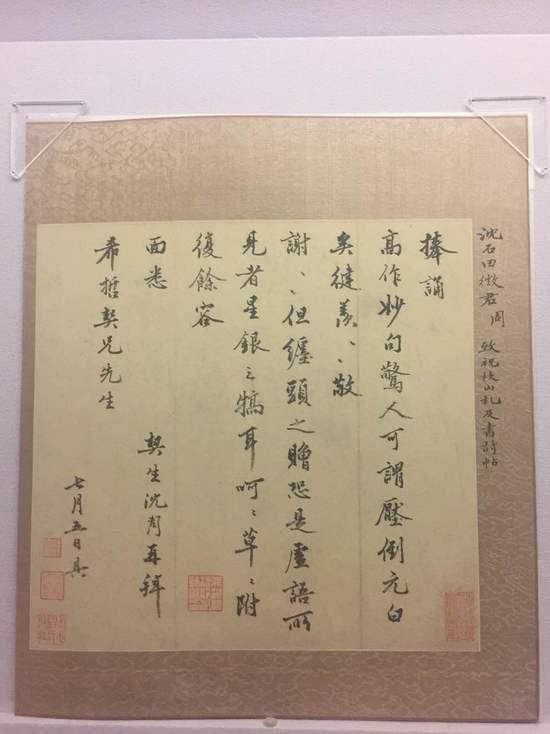 沈石田徵君周 致祝枝山札及書詩帖
捧誦
高作妙句驚人可謂壓倒元白
矣健羨、、敬
謝、、但纏頭之贈恐是虛語所
見者星銀之犒耳呵〻草〻附
復餘容
面悉
契生沈周再拜
希哲契兄先生
七月五日具